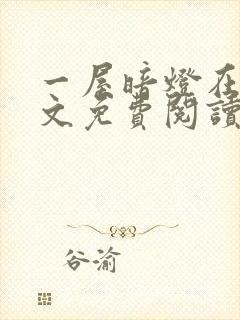 一屋暗燈在
文免費閱讀
谷渝